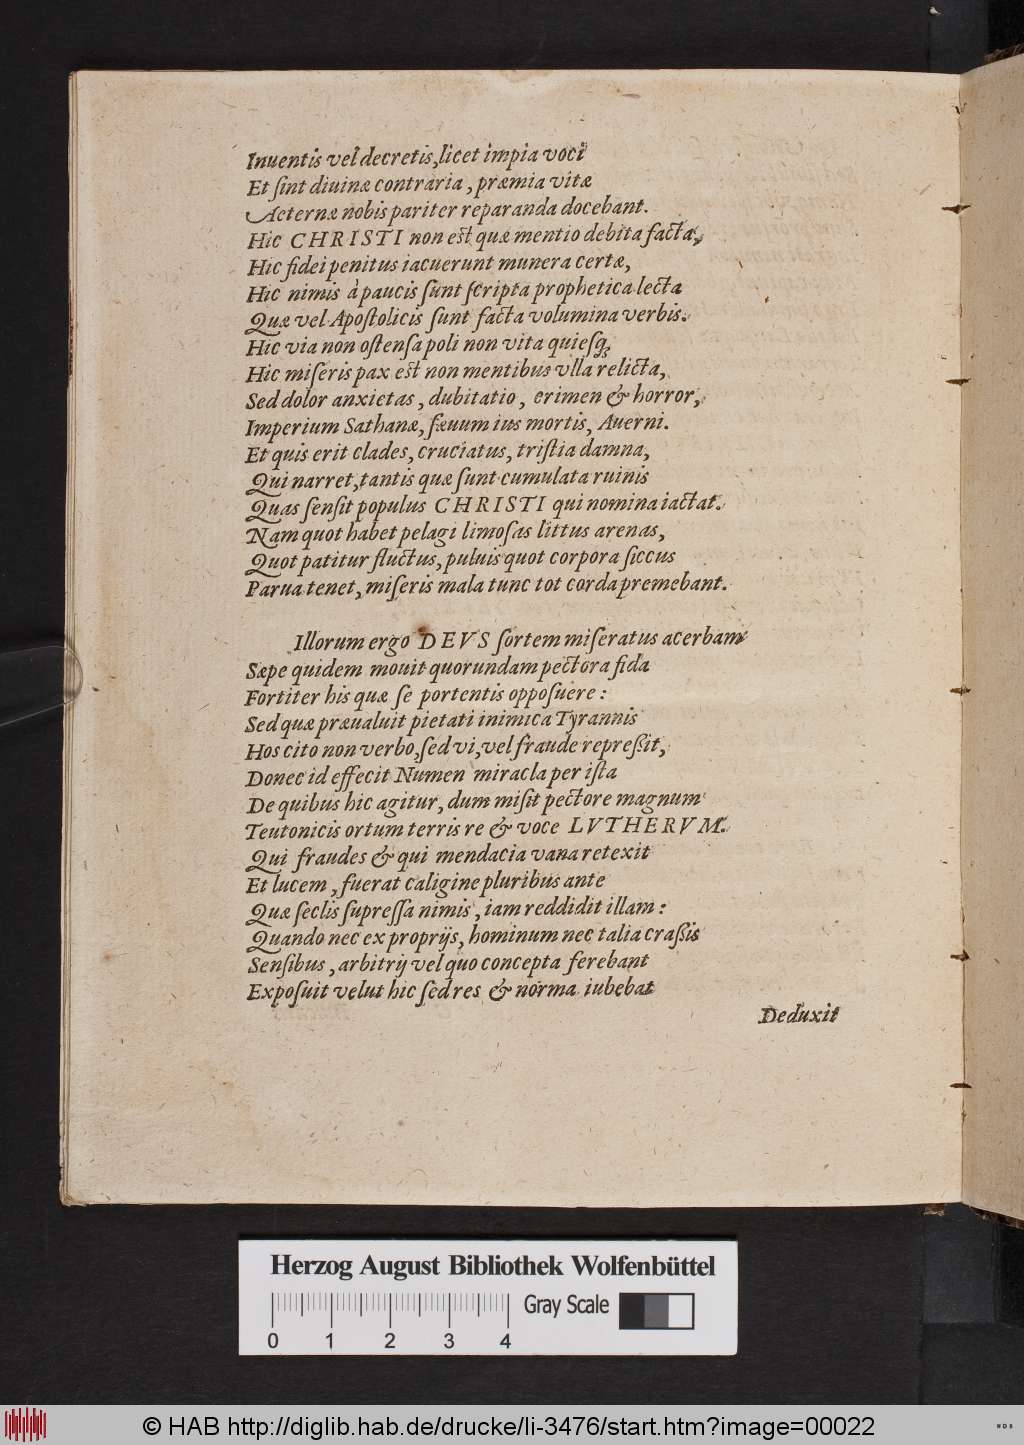 Inuentis vel decretis, licet impia voci
Et ſint diuinæ contraria, præmia vitæ
Aeternæ nobis pariter reparanda docebant.
Hic CHRISTI non est quæ mentio debita facta,
Hic fidei penitus iacuerunt munera certæ,
Hic nimis à paucis ſunt ſcripta prophetica lecta
Quæ vel Apoſtolicis ſunt facta volumina verbis.
Hic via non oſtenſa poli non vita quieſq;
Hic miſeris pax est non mentibus vlla relicta,
Sed dolor anxietas, dubitatio, crimen & horror,
Imperium Sathanæ, ſæuum ius mortis, Auerni.
Et quis erit clades, cruciatus, triſtia damna,
Qui narret, tantis quæ ſunt cumulata ruinis
Quas ſenſit populus CHRISTI qui nomina iactat.
Nam quot habet pelagi limoſas littus arenas,
Quot patitur fluctus, puluis quot corpora ſiccus
Parua tenet, miſeris mala tunc tot corda premebant.
Illorum ergo DEVS ſortem miſeratus acerbam
Sæpe quidem mouit quorundam pectora fida
Fortiter his quæ ſe portentis oppoſuere:
Sed quæ præualuit pietati inimica Tyrannis
Hos cito non verbo, ſed vi, vel fraude repreßit,
Donec id effecit Numen miracla per iſta
De quibus hic agitur, dum miſit pectore magnum
Teutonicis ortum terris re & voce LVTHERVM.
Qui fraudes & qui mendacia vana retexit
Et lucem, fuerat caligine pluribus ante
Quæ ſeclis ſupreſſa nimis, iam reddidit illam:
Quando nec ex proprijs, hominum nec talia craßis
Senſibus, arbitrij vel quo concepta ferebant
Expoſuit velut hic ſed res & norma iubebat
Deduxit
Herzog August Bibliothek Wolfenbüttel
Gray Scale
0 1 2 3 4
© HAB http://diglib.hab.de/drucke/li-3476/start.htm?image=00022